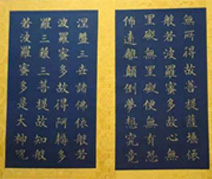 無所得故菩提薩埵依
般若波羅蜜多故心無
罣礙無罣礙故無有恐
怖遠離顛倒夢想究竟
涅盤三世諸佛依般若
波羅蜜多故得阿耨多
羅三藐三菩提故知般
若波羅蜜多是大神呪